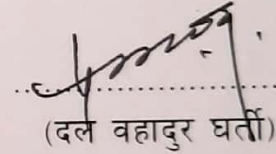 (दल वहादुर घर्ती)